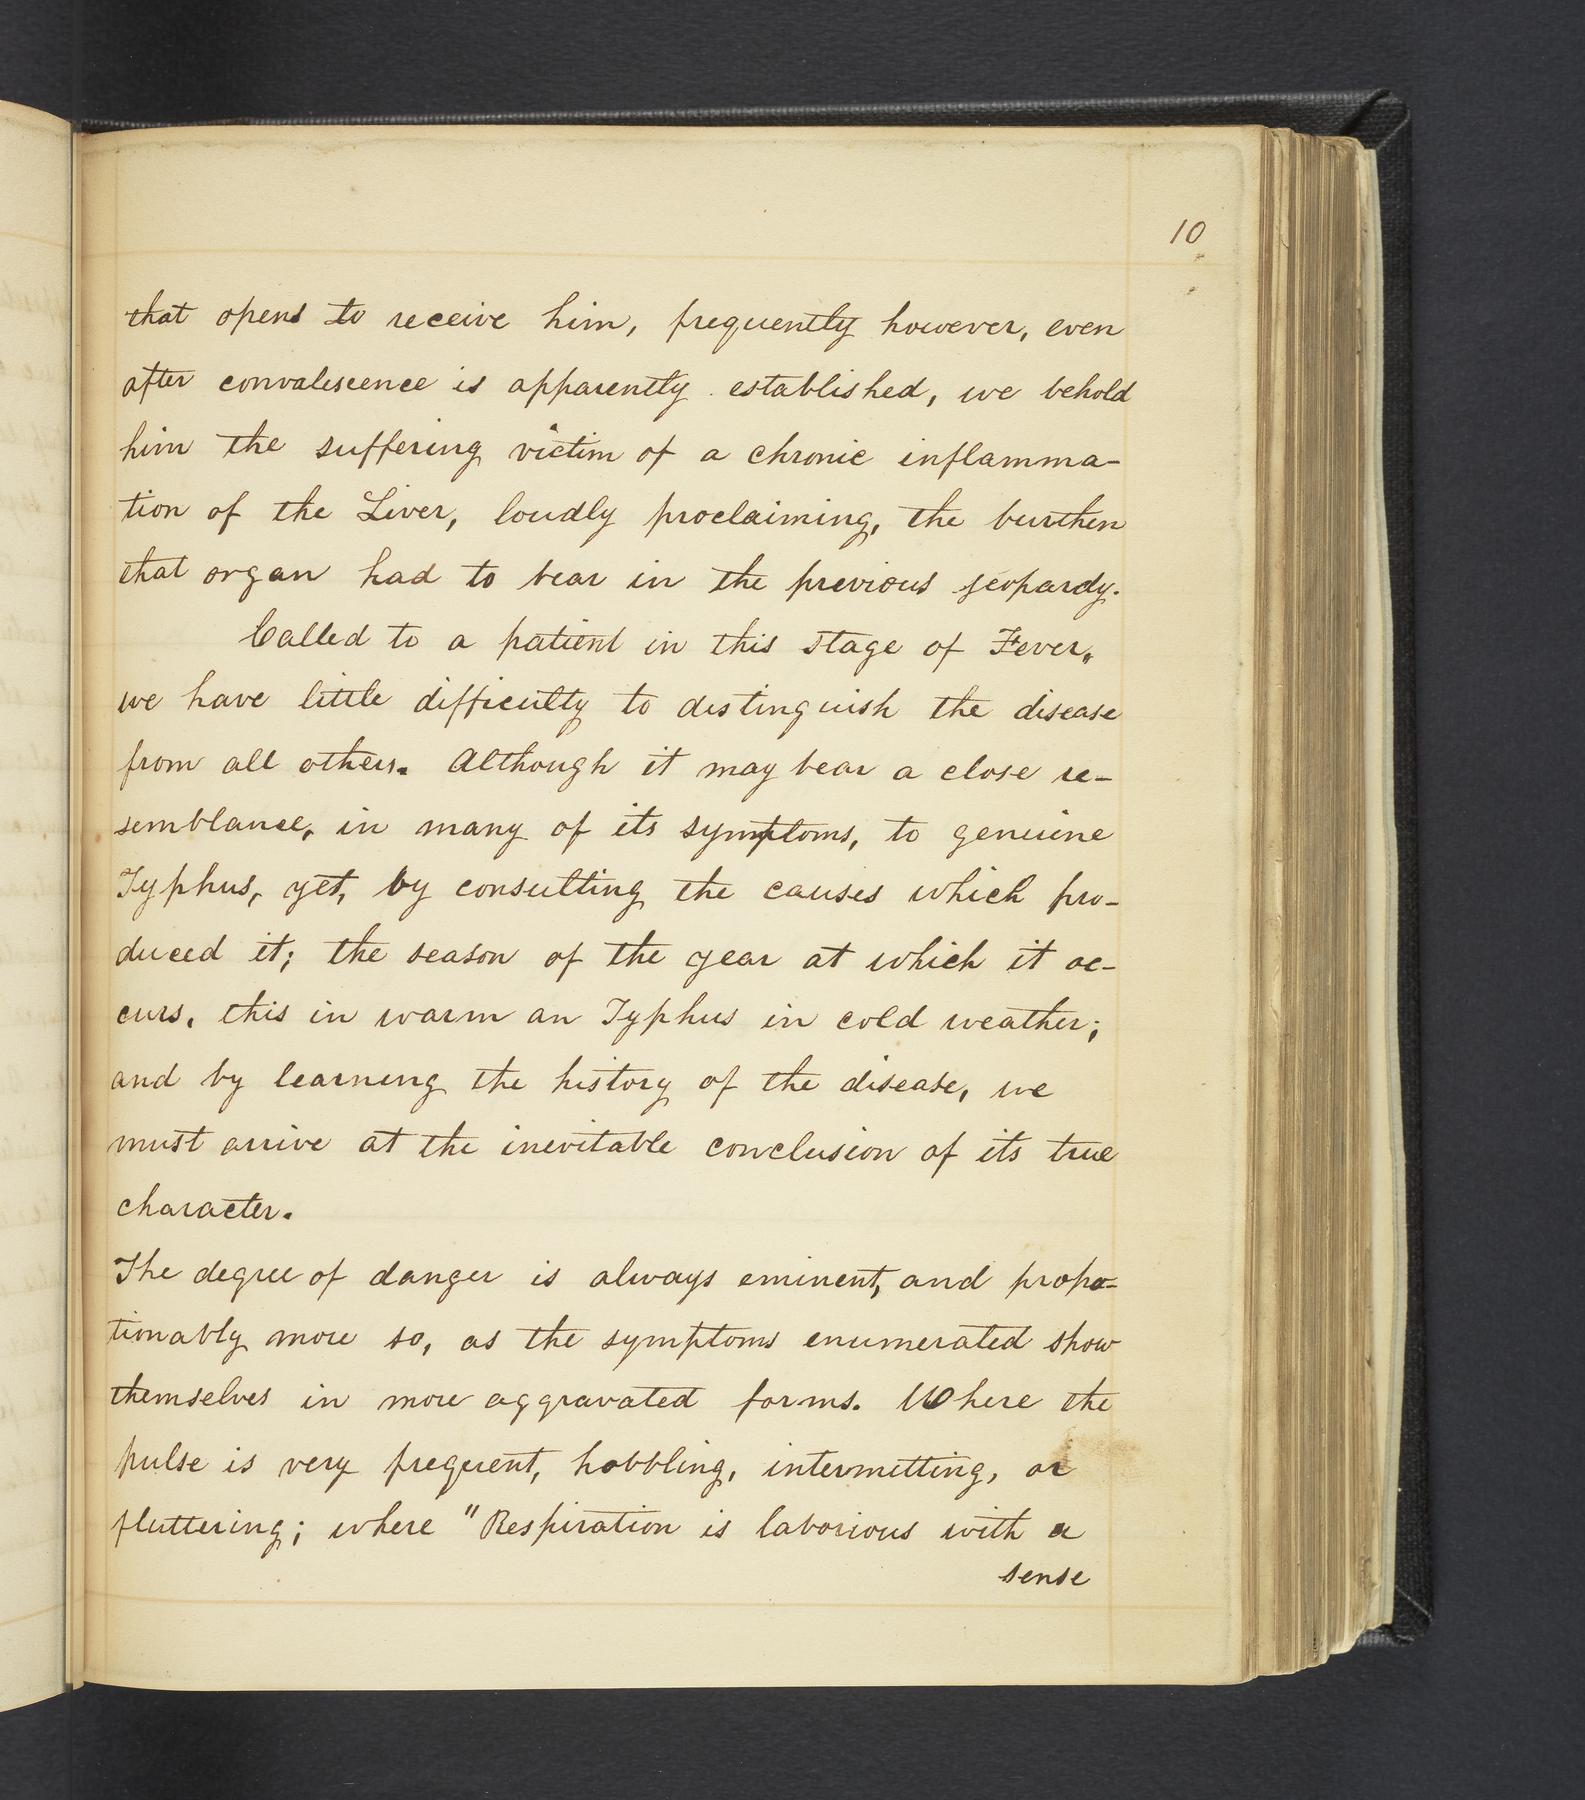 10
that opens to receive him, frequently however, even
after convalescence is apparently established, we behold
him the suffering victim of a chronic inflamma-
tion of the Liver, loudly proclaiming, the burthen
that organ had to bear in the previous jeopardy.
Called to a patient in this stage of Fever,
we have little difficulty to distinguish the disease
from all others. Although it may bear a close re-
semblance, in many of its symptoms, to genuine
Typhus, yet, by consulting the causes which pro-
duced it; the season of the year at which it oc-
curs, this in warm an Typhus in cold weather;
and by learning the history of the disease, we
must arrive at the inevitable conclusion of its true
character.
The degree of danger is always eminent, and propo-
tionably more so, as the symptoms enumerated show
themselves in more aggravated forms. Where the
pulse is very frequent, hobbling, intermitting, or
fluttering; where "Respiration is laborious with a
sense